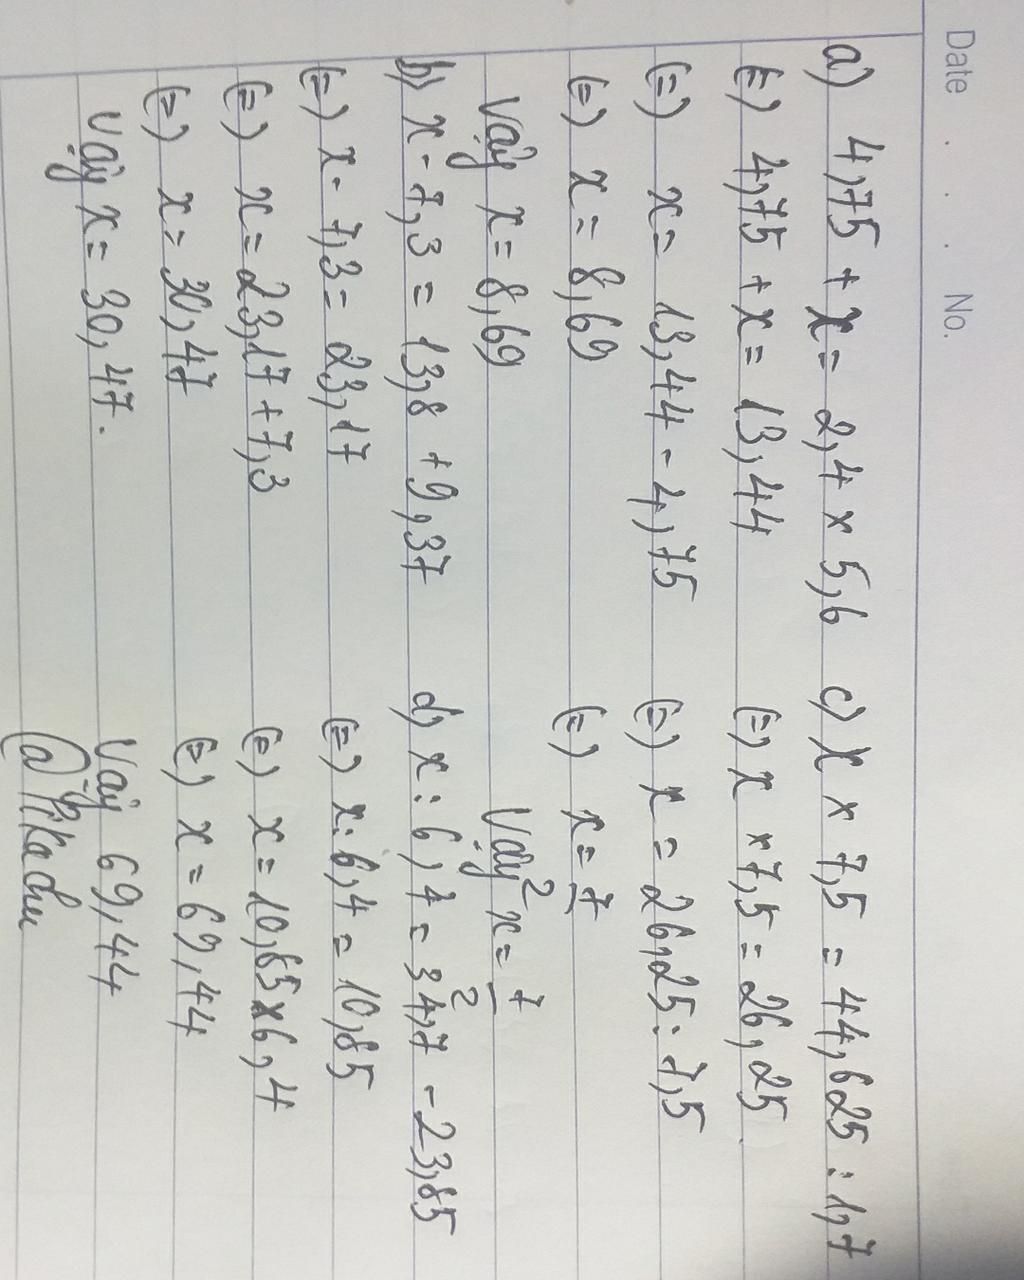 Date . . . No.
a) 4,75 + x = 2,4 x 5,6
(=) 4,75 + x = 13,44
(=) x = 13,44 - 4,75
(=) x = 8,69
Vậy x = 8,69
b) x - 7,3 = 13,8 + 9,37
(=) x - 7,3 = 23,17
(=) x = 23,17 + 7,3
(=) x = 30,47
Vậy x = 30,47.
c) x x 7,5 = 44,625 : 1,7
(=) x x 7,5 = 26,25
(=) x = 26,25 : 7,5
(=) x = 7/2
Vậy x = 7/2
d) x : 6,4 = 34,7 - 23,85
(=) x : 6,4 = 10,85
(=) x = 10,85 x 6,4
(=) x = 69,44
Vậy 69,44